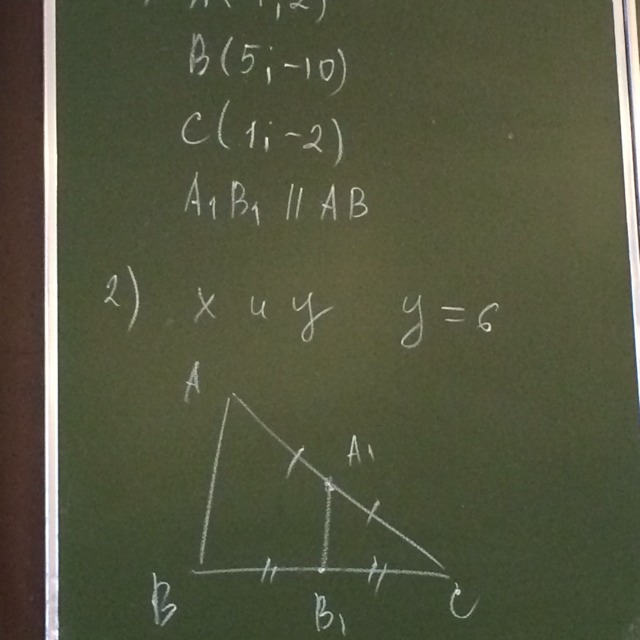 B(5;-10)
C(1;-2)
A₁B₁ || AB
2) x и y y = 6
A
A₁
B B₁ C